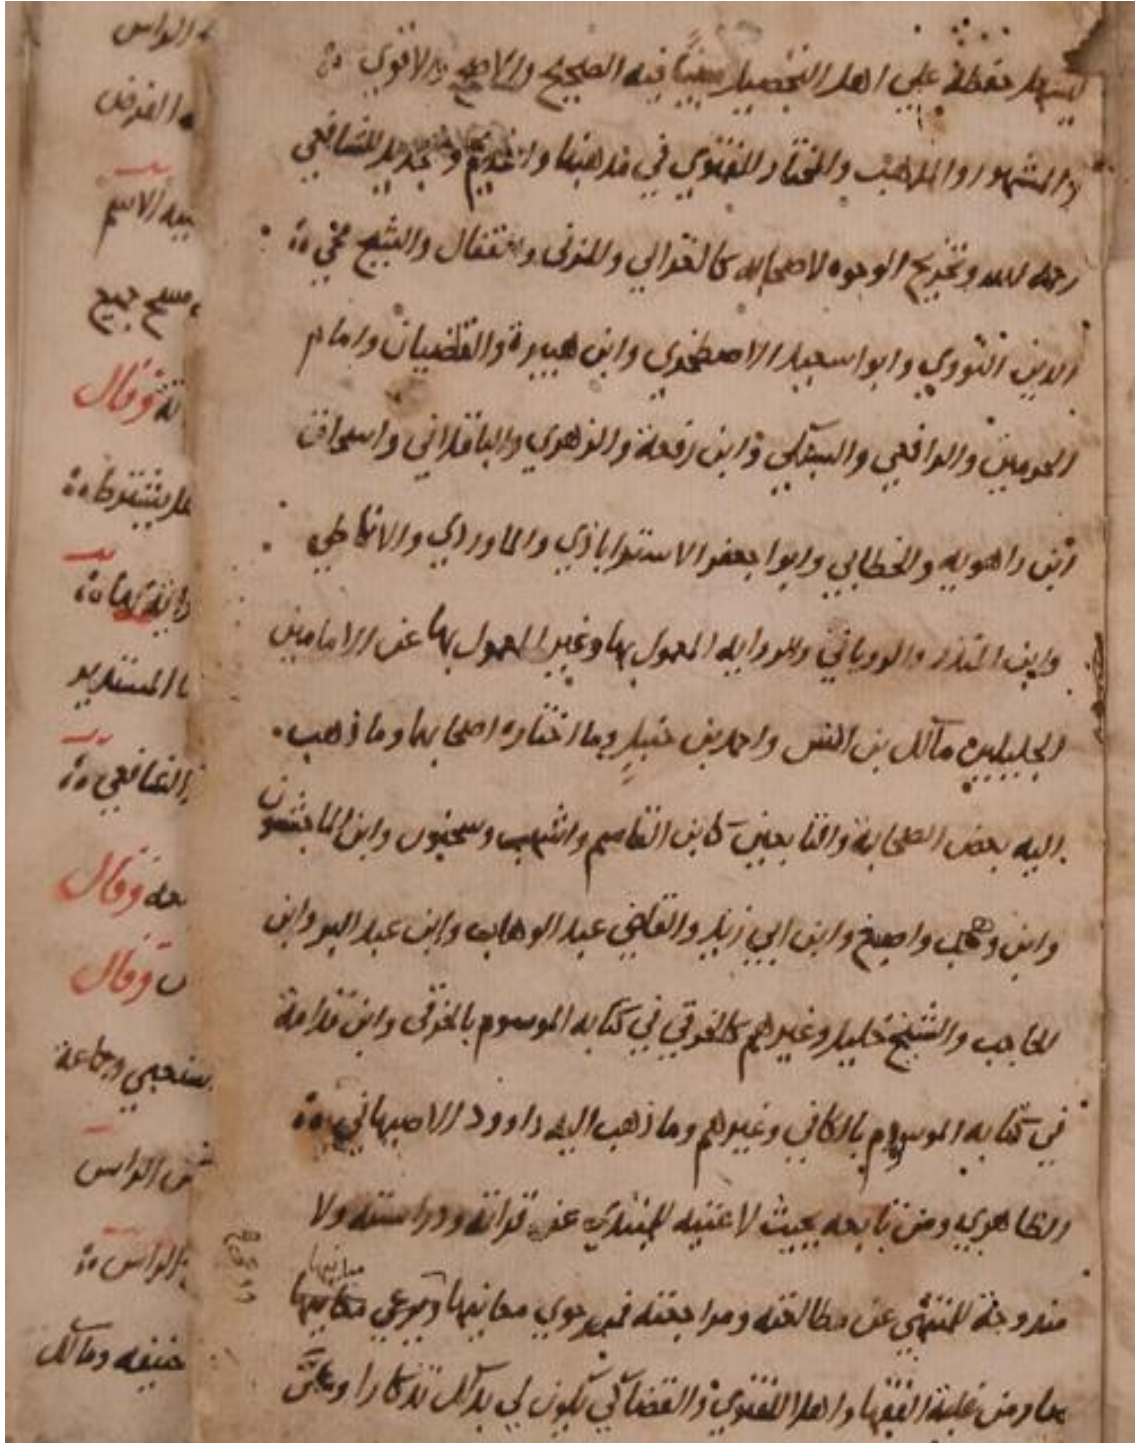 ليسهل حفظه علي اهل التحصيل مبينا فيه الصحيح والاصح والاقوي
والمشهور والمذهب والمختار للفتوي في مذهبنا والقديم وجديد للشافعي
رحمه الله وتخريج الوجوه لاصحابه كالغزالي والمزني والقفال والشيخ محي
الدين النووي وابو اسعيد الاصطخري وابن هبيرة والقاضيان وامام
الحرمين والرافعي والسبكي وابن رفعة والزهري والباقلاني واسحاق
ابن راهويه والخطابي وابوا جعفر الاستراباذي والماوردي والانماطي
وابن المنذر والروياني والروايه المعمول بها وغير المعمول بها عن الامامين
الجليلين مالك بن انس واحمد بن حنبل وما اختاره اصحابهما وما ذهب
اليه بعض الصحابة والتابعين كابن القاسم واشهب وسحنون وابن الماجشون
وابن وهب واصبغ وابن ابي زيد والقاضي عبد الوهاب وابن عبد البر وابن
الحاجب والشيخ خليل وغيرهم كالخرقي في كتابه الموسوم بالخرقي وابن قدامة
في كتابه الموسوم بالكافي وغيرهم وما ذهب اليه داوود الاصبهاني
الظاهري ومن تابعه بحيث لا غنيه للمبتدي عن قراته ودراسته ولا
مندوحة للمنتهي عن مطالعته ومراجعته فمن حوي معانيها ورعي مبانيها
صار من علية الفقها واهل الفتوي والقضا كي يكون لي بذلك تذكارا
الراس
الفرض
الاسم
مسح جميع
وقال
يشترط
المستدير
الشافعي
وقال
وقال
وجماعة
الراس
الراس
حنيفه ومالك